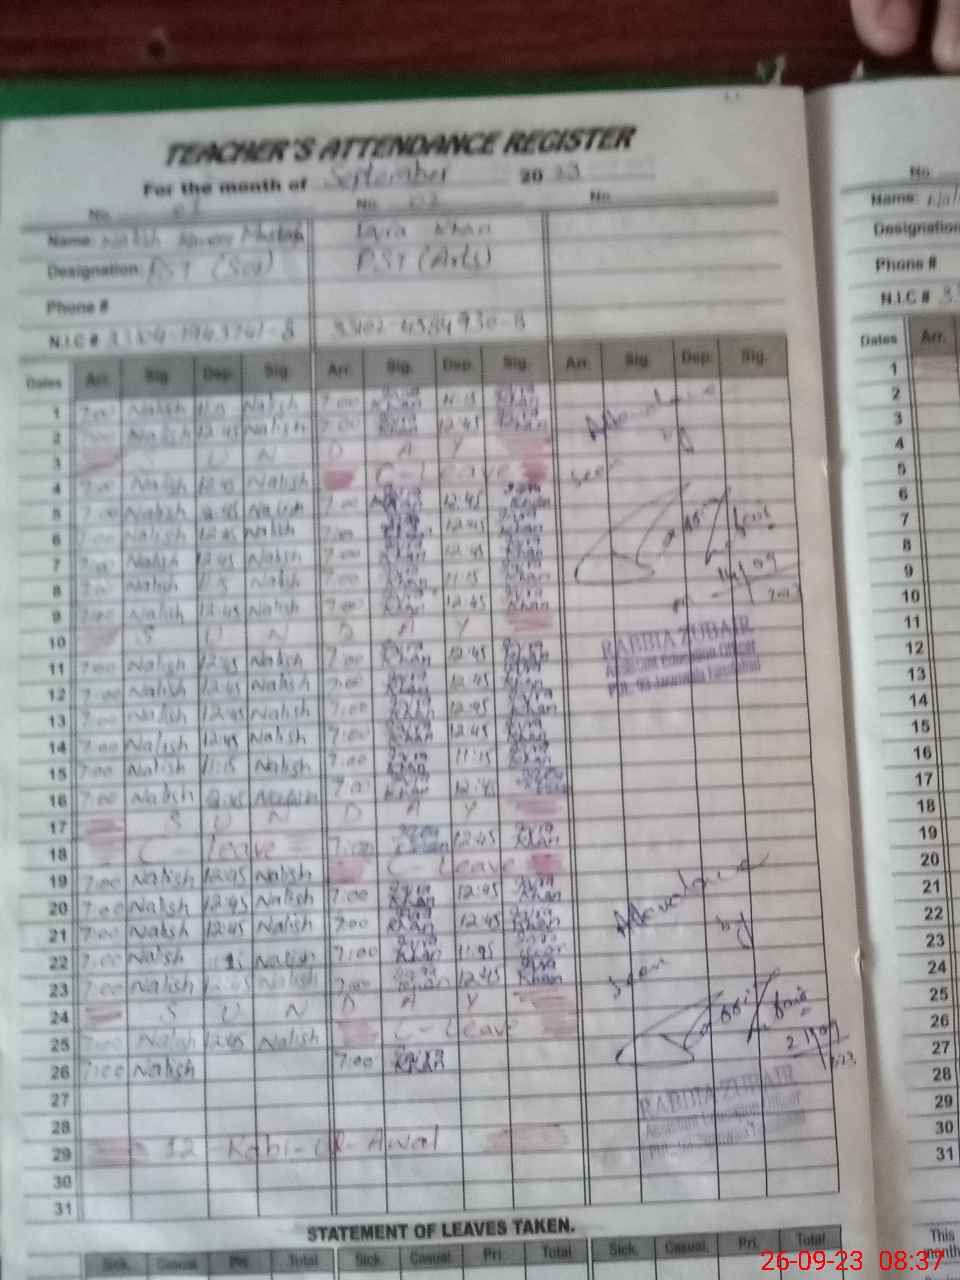 TEACHER'S ATTENDANCE REGISTER
For the month of September 2023
No. 01 No. 02 No.
Name: Natish Mustafa Iqra Khan
Designation: PST (Sci) PST (Arts)
Phone #
N.I.C #
Dates Arr. Sig. Dep. Sig. Arr. Sig. Dep. Sig. Arr. Sig. Dep. Sig.
1 7:00 Natish 11:15 Natish 7:00 Iqra Khan 11:15 Iqra Khan
2 7:00 Natish 12:45 Natish 7:00 Iqra Khan 12:45 Iqra Khan
3 S U N D A Y
4 7:00 Natish 12:45 Natish C-Leave
5 7:00 Natish 12:45 Natish 7:00 Iqra Khan 12:45 Iqra Khan
6 7:00 Natish 12:45 Natish 7:00 Iqra Khan 12:45 Iqra Khan
7 7:00 Natish 12:45 Natish 7:00 Iqra Khan 12:45 Iqra Khan
8 7:00 Natish 11:15 Natish 7:00 Iqra Khan 11:15 Iqra Khan
9 7:00 Natish 12:45 Natish 7:00 Iqra Khan 12:45 Iqra Khan
10 S U N D A Y
11 7:00 Natish 12:45 Natish 7:00 Iqra Khan 12:45 Iqra Khan
12 7:00 Natish 12:45 Natish 7:00 Iqra Khan 12:45 Iqra Khan
13 7:00 Natish 12:45 Natish 7:00 Iqra Khan 12:45 Iqra Khan
14 7:00 Natish 12:45 Natish 7:00 Iqra Khan 12:45 Iqra Khan
15 7:00 Natish 11:15 Natish 7:00 Iqra Khan 11:15 Iqra Khan
16 7:00 Natish 12:45 Natish 7:00 Iqra Khan 12:45
17 S U N D A Y
18 C-Leave 7:00 Iqra Khan 12:45 Iqra Khan
19 7:00 Natish 12:45 Natish C-Leave
20 7:00 Natish 12:45 Natish 7:00 Iqra Khan 12:45 Iqra Khan
21 7:00 Natish 12:45 Natish 7:00 Iqra Khan 12:45 Iqra Khan
22 7:00 Natish Natish 7:00 Iqra Khan Iqra Khan
23 7:00 Natish 12:45 Natish 7:00 Iqra Khan 12:45 Iqra Khan
24 S U N D A Y
25 7:00 Natish 12:45 Natish C-Leave
26 7:00 Natish 7:00 Iqra Khan
27
28
29 12 Rabi-ul-Awal
30
31
Attendance
seen
14/09
2023
RABBIA ZUBAIR
Assistant Education Officer
Attendance
seen
RABBIA ZUBAIR
Assistant Education Officer
STATEMENT OF LEAVES TAKEN.
Sick. Casual. Pri. Total Sick. Casual. Pri. Total Sick. Casual. Pri. Total
No.
Name:
Designation
Phone #
N.I.C #
Dates Arr.
1
2
3
4
5
6
7
8
9
10
11
12
13
14
15
16
17
18
19
20
21
22
23
24
25
26
27
28
29
30
31
This
month
26-09-23 08:37